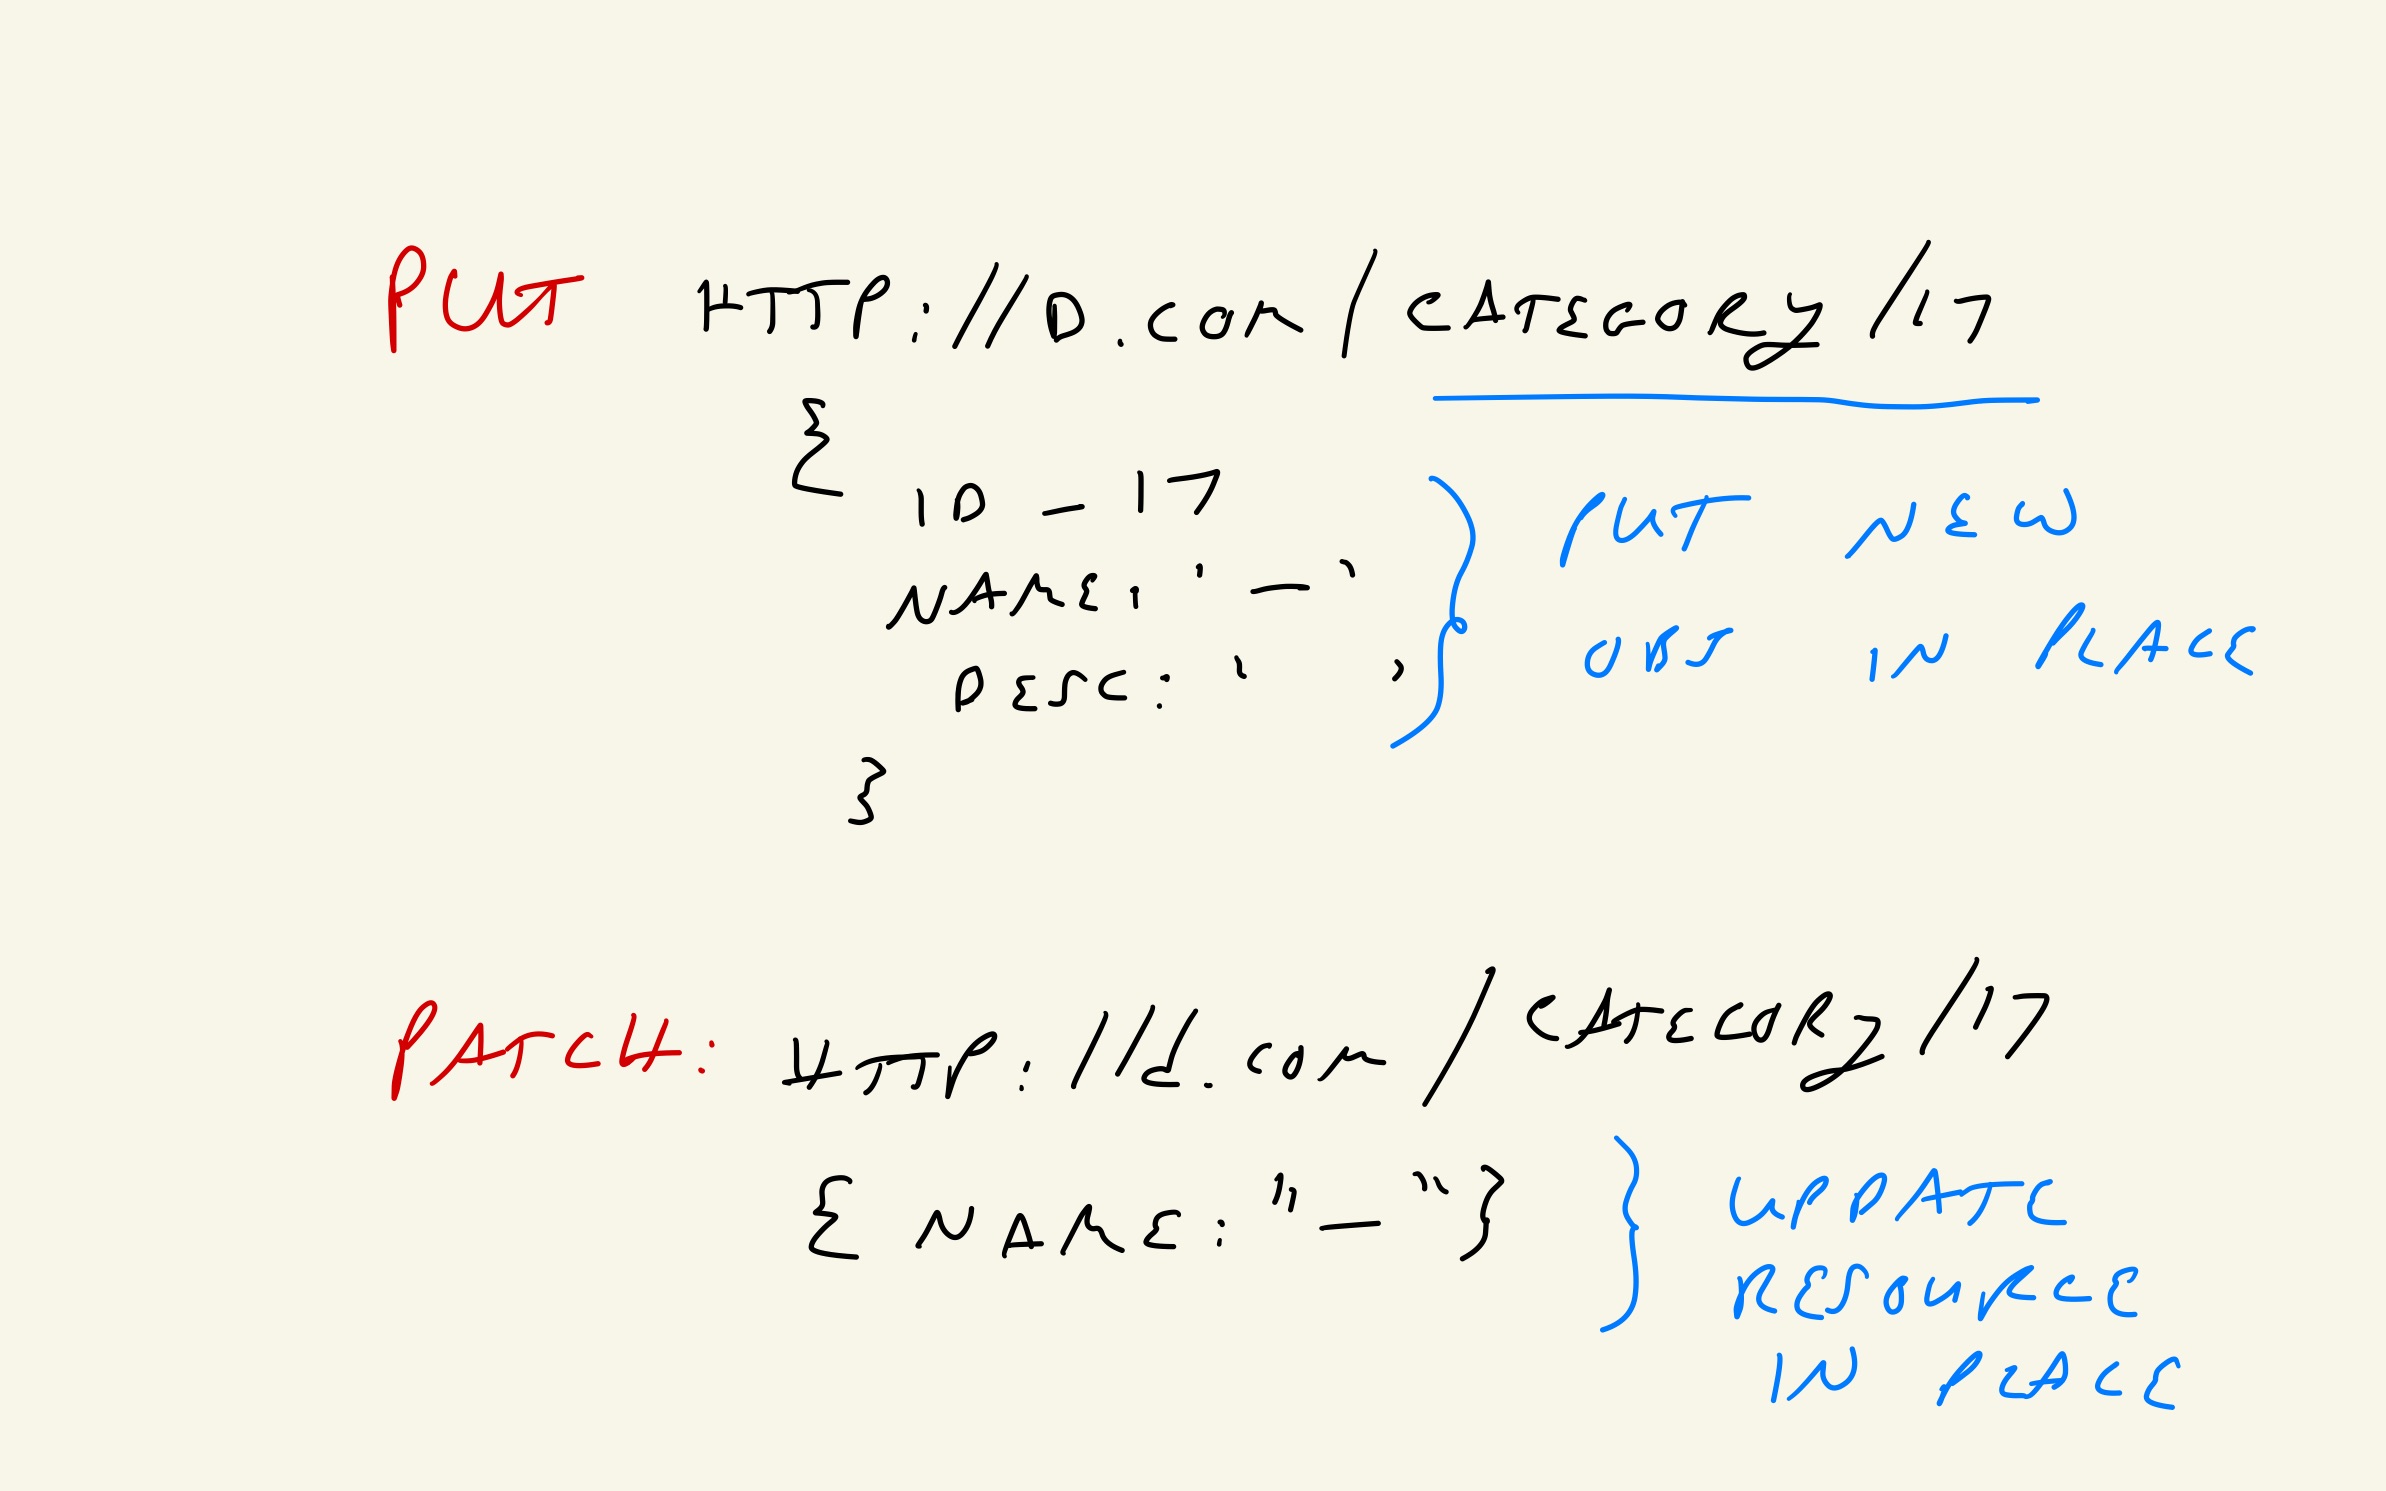 PUT HTTP://D.COM/CATEGORY/17
{
ID - 17
NAME: " — "
DESC: " "
}
PUT NEW
OBJ IN PLACE
PATCH: HTTP://d.com/CATEGORY/17
{ NAME: "—"}
UPDATE
RESOURCE
IN PLACE